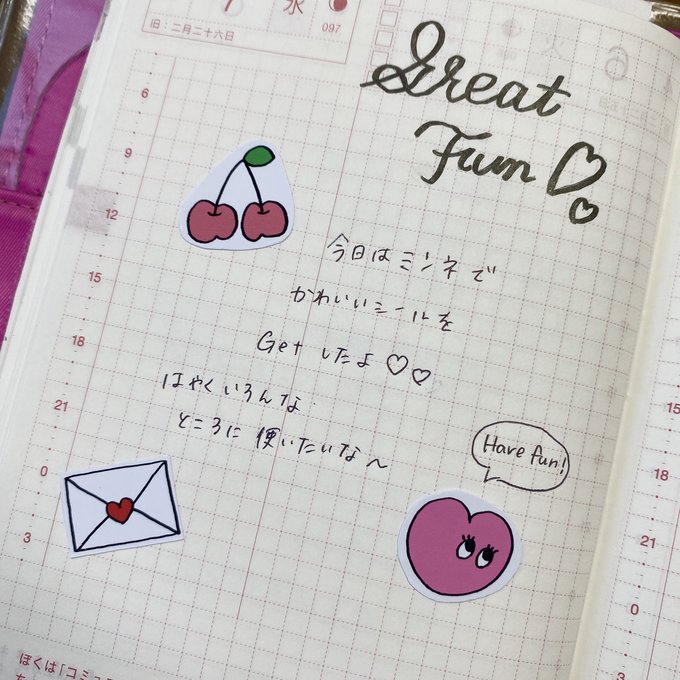 7 水
097
旧:二月二十六日
Great
Fun♡♡
今日はミンネで
かわいいシールを
Getしたよ♡♡
はやくいろんな
ところに使いたいな〜
Have fun!
6
9
12
15
18
21
0
3
15
18
21
0
3
ぼくは「コミュ